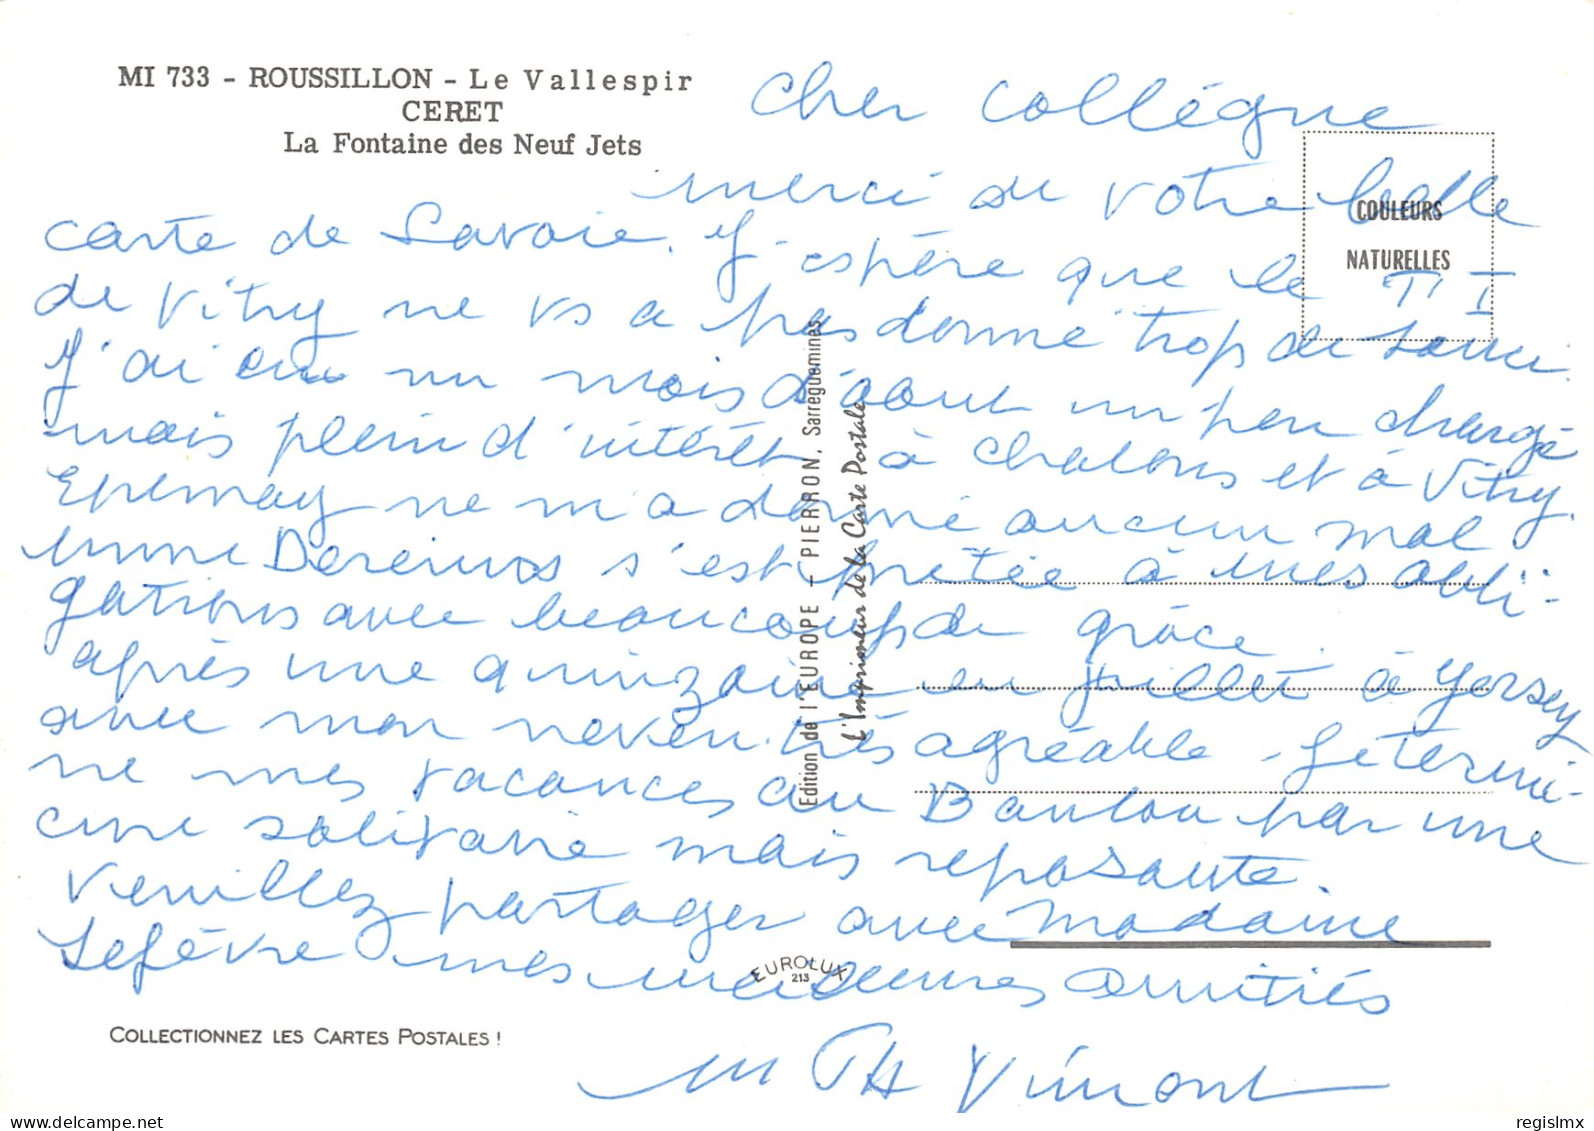 MI 733 - ROUSSILLON - Le Vallespir
CERET
La Fontaine des Neuf Jets
Cher collègue
merci de votre belle
carte de Savoie. J'espère que le TI
de Vitry ne vs a pas donné trop de souci.
J'ai eu un mois d'août un peu chargé
mais plein d'intérêt à Chalons et à Vitry.
Epernay ne m'a donné aucun mal
Mme s'est prêtée à mes obli-
gations avec beaucoup de grâce.
après une quinzaine en juillet à Jersey
avec mon neveu très agréable - je termi-
ne mes vacances au Boulou par une
cure solitaire mais reposante.
Veuillez partager avec Madame
Lefèvre mes meilleures amitiés
M Th Vimont
COULEURS
NATURELLES
Edition de l'EUROPE - PIERRON, Sarreguemines
L'Imprimeur de la Carte Postale
EUROLUX
213
COLLECTIONNEZ LES CARTES POSTALES !
regislmx